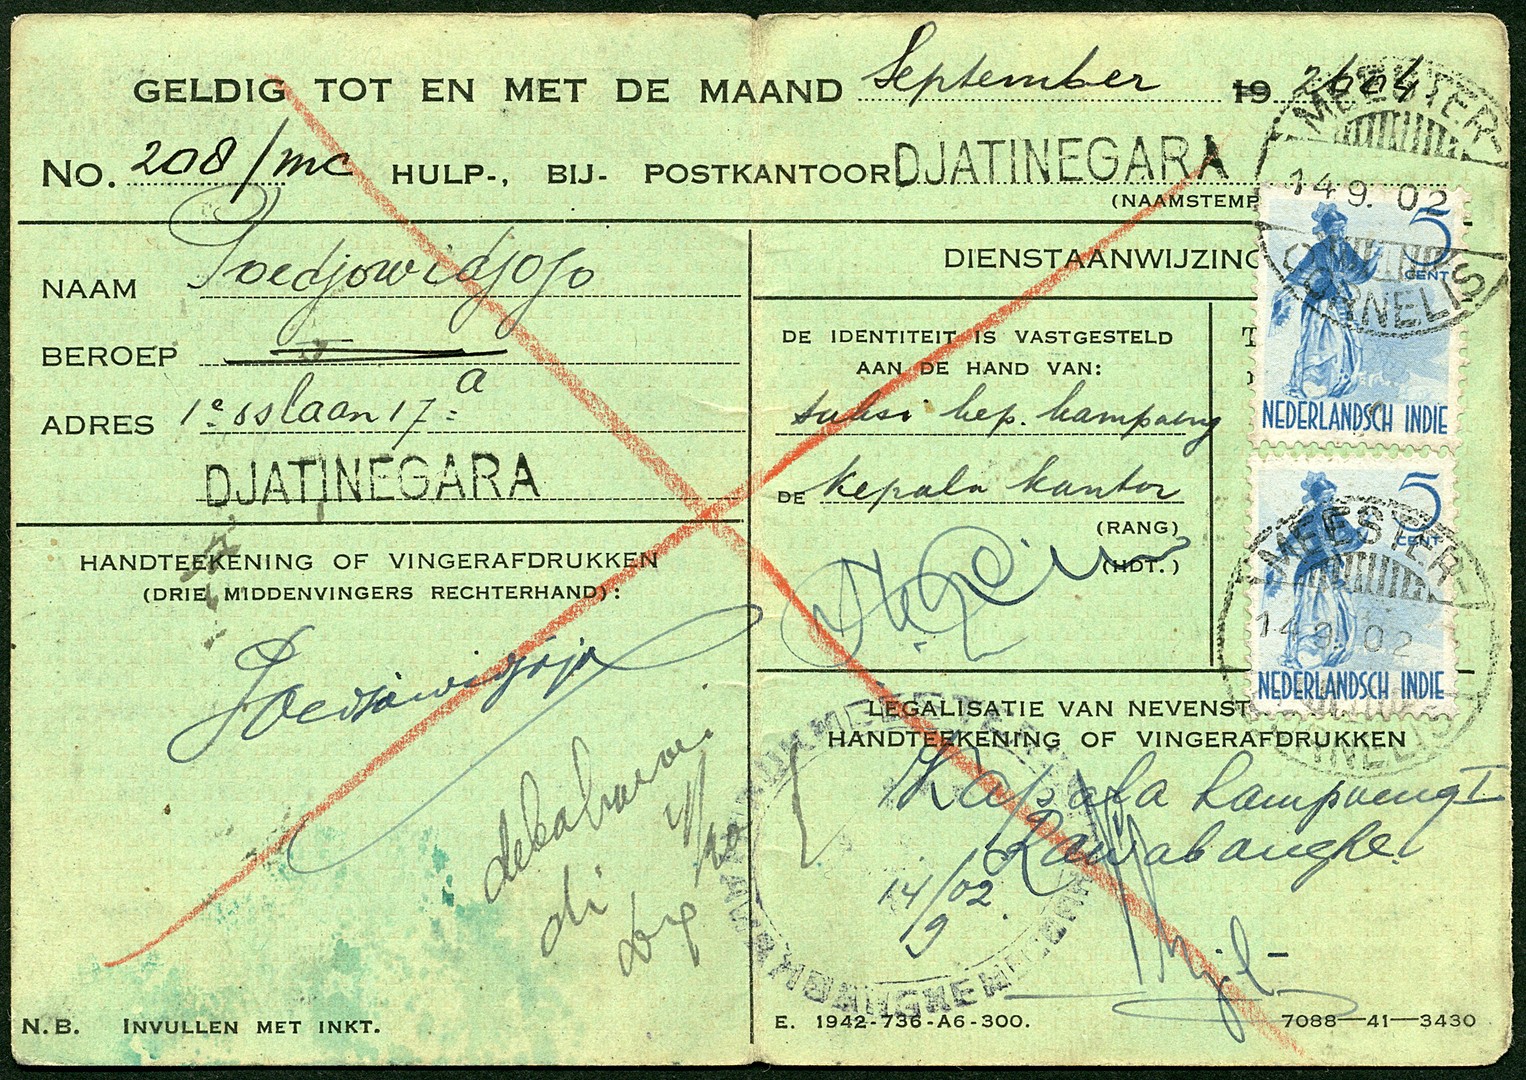 GELDIG TOT EN MET DE MAAND September 19 2604
No. 208/mc HULP-, BIJ- POSTKANTOOR DJATINEGARA
(NAAMSTEMP
NAAM Poedjowidjojo
BEROEP
ADRES 1e oslaan 17a
DJATINEGARA
HANDTEEKENING OF VINGERAFDRUKKEN
(DRIE MIDDENVINGERS RECHTERHAND):
N.B. INVULLEN MET INKT.
DIENSTAANWIJZING
DE IDENTITEIT IS VASTGESTELD
AAN DE HAND VAN:
kep. kampoeng
DE kepala kantor
(RANG)
(HDT.)
LEGALISATIE VAN NEVENST
HANDTEEKENING OF VINGERAFDRUKKEN
Kapala kampoeng I
Rawabangke
14/9 02
E. 1942-736-A6-300.
7088—41—3430
MEESTER-
14 9. 02
CORNELIS
5
CENT
NEDERLANDSCH INDIE
5
CENT
MEESTER-
14 9. 02
CORNELIS
NEDERLANDSCH INDIE